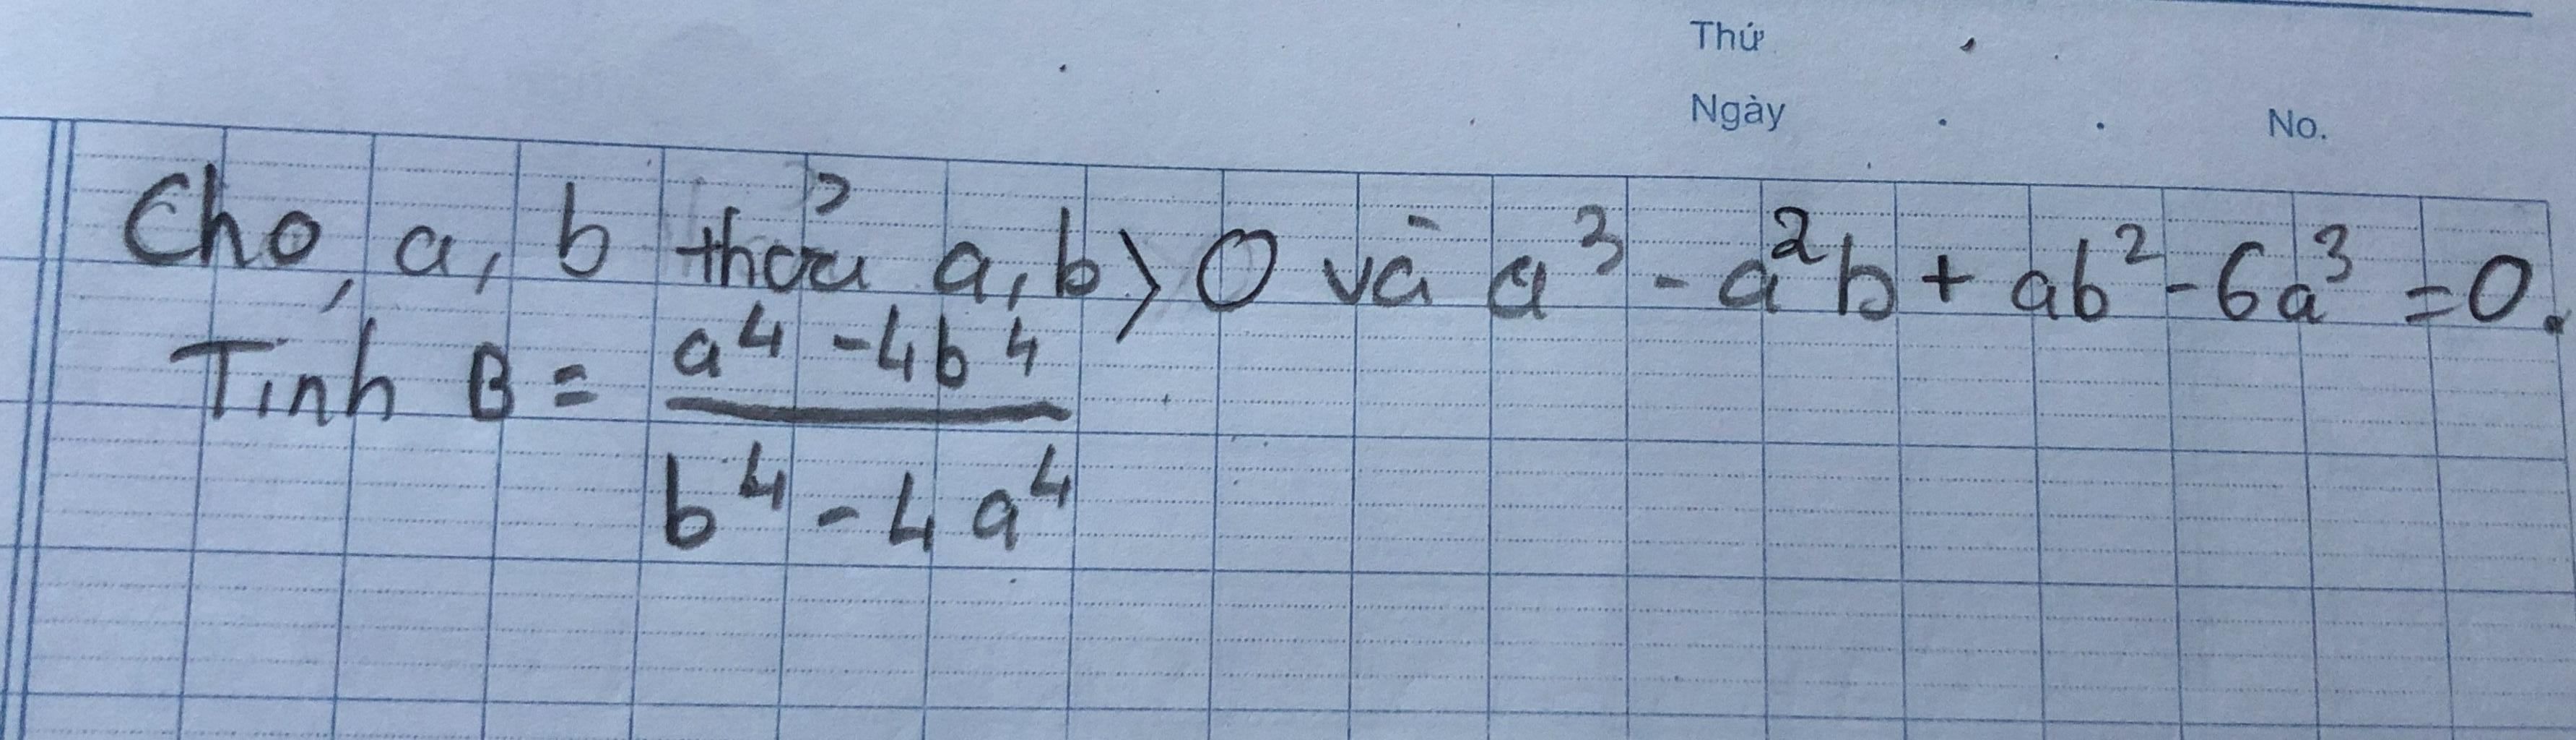 Thứ
Ngày No.
Cho a, b thỏa a, b > 0 và a³ - a²b + ab² - 6a³ = 0.
Tính B = a⁴ - 4b⁴
b⁴ - 4a⁴